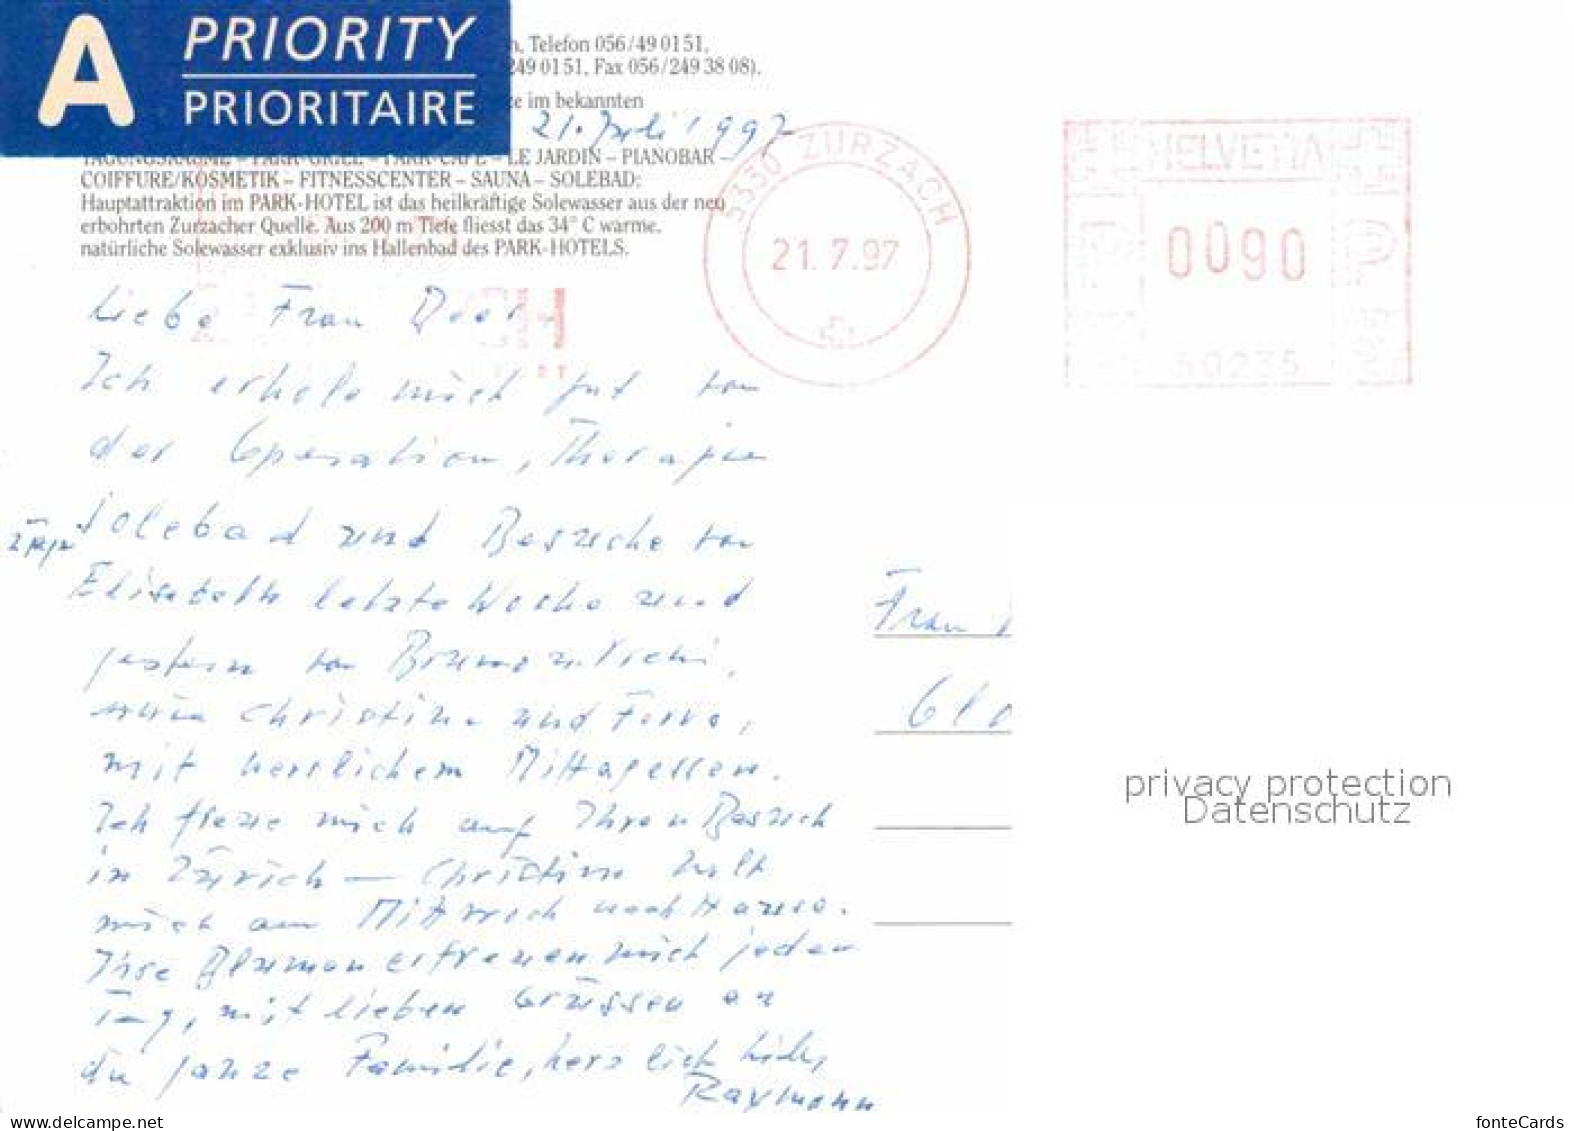 A PRIORITY
PRIORITAIRE
Telefon 056/49 01 51,
249 01 51, Fax 056/249 38 08).
im bekannten
21. Juli 1997
TAGUNGSRÄUME – PARK-GRILL – PARK-CAFE – LE JARDIN – PIANOBAR –
COIFFURE/KOSMETIK – FITNESSCENTER – SAUNA – SOLEBAD:
Hauptattraktion im PARK-HOTEL ist das heilkräftige Solewasser aus der neu
erbohrten Zurzacher Quelle. Aus 200 m Tiefe fliesst das 34° C warme,
natürliche Solewasser exklusiv ins Hallenbad des PARK-HOTELS.
5330 ZURZACH
21.7.97
HELVETIA
0090
P P
60235
Liebe Frau
Ich erhole mich gut von
der Operation, Therapie
Solebad und Besuche von
Elisabeth letzte Woche und
gestern von
Christine und
mit herrlichem Mittagessen.
Ich freue mich auf Ihren Besuch
in Zürich – Christine holt
mich am Mittwoch nach Hause.
Ihre Blumen erfreuen mich jeden
Tag, mit lieben Grüssen an
die ganze Familie, herzlich
Raymann
Frau
privacy protection
Datenschutz
www.delcampe.net
fonteCards